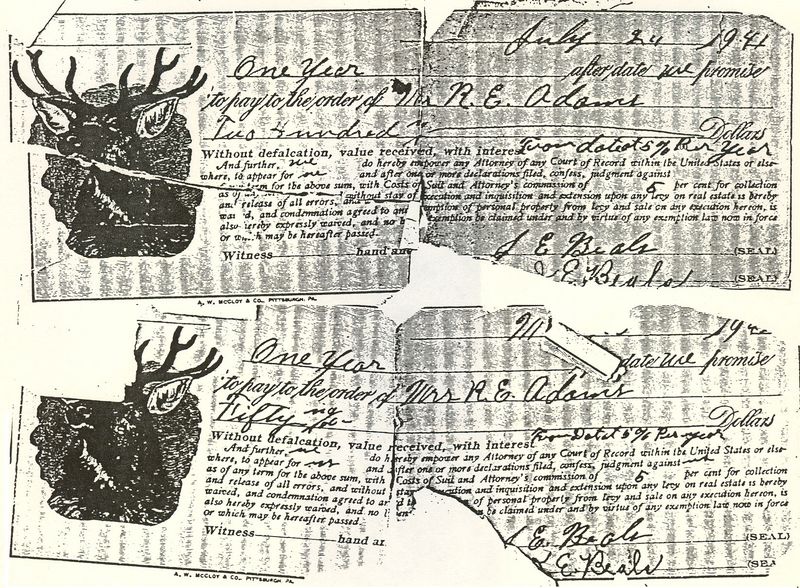 July 24 1941
One Year after date we promise
to pay to the order of Mrs R. E. Adams
Two Hundred Dollars
Without defalcation, value received, with interest from date at 5% Per Year
And further, we do hereby empower any Attorney of any Court of Record within the United States or else-
where, to appear for us and after one or more declarations filed, confess, judgment against
as of term for the above sum, with Costs of Suit and Attorney's commission of 5 per cent for collection
and release of all errors, and without stay of execution and inquisition and extension upon any levy on real estate is hereby
waived, and condemnation agreed to and exemption of personal property from levy and sale on any execution hereon, is
also hereby expressively waived, and no exemption be claimed under and by virtue of any exemption law now in force
or which may be hereafter passed.
Witness hand and
J E Beals (SEAL)
E. Beals (SEAL)
A. W. McCLOY & CO., PITTSBURGH, PA.
19
One Year date we promise
to pay to the order of Mrs R. E. Adams
Fifty Dollars
Without defalcation, value received, with interest from Date at 5% Per year
And further, we do hereby empower any Attorney of any Court of Record within the United States or else-
where, to appear for us and after one or more declarations filed, confess, judgment against us
as of any term for the above sum, with Costs of Suit and Attorney's commission of 5 per cent for collection
and release of all errors, and without stay execution and inquisition and extension upon any levy on real estate is hereby
waived, and condemnation agreed to and of personal property from levy and sale on any execution hereon, is
also hereby expressively waived, and no be claimed under and by virtue of any exemption law now in force
or which may be hereafter passed.
Witness hand
J E. Beals (SEAL)
E Beals (SEA
A. W. McCLOY & CO., PITTSBURGH, PA.